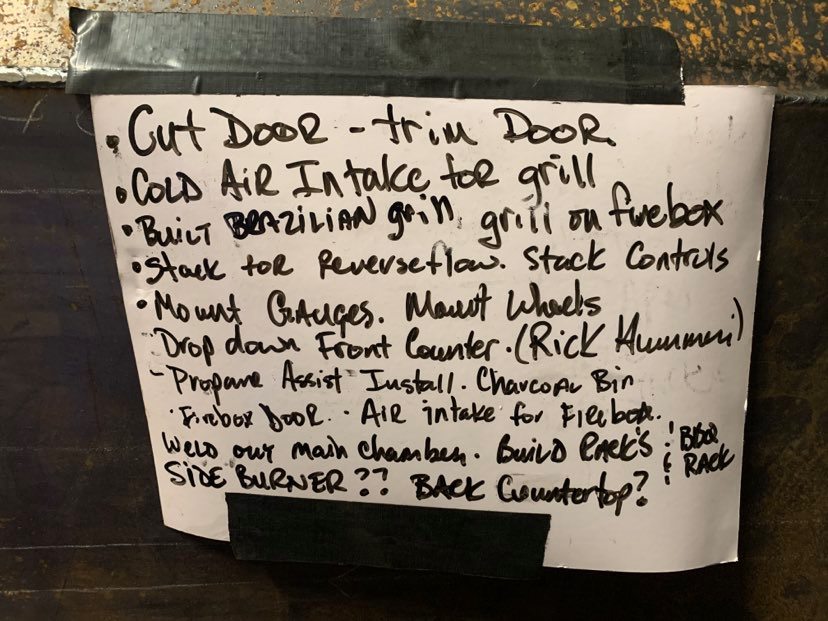 • Cut DOOR - trim DOOR.
• COLD AIR Intake for grill
• BUILT BRAZILIAN grill, grill on firebox
• Stack for Reverseflow. Stack Controls
• Mount GAUGES. Mount Wheels
Drop down Front Counter. (Rick
- Propane Assist Install. Charcoal Bin
· Firebox Door. · Air intake for Firebox.
Weld out main chamber. BUILD RACK'S ! BBQ
SIDE BURNER?? BACK Countertop? RACK